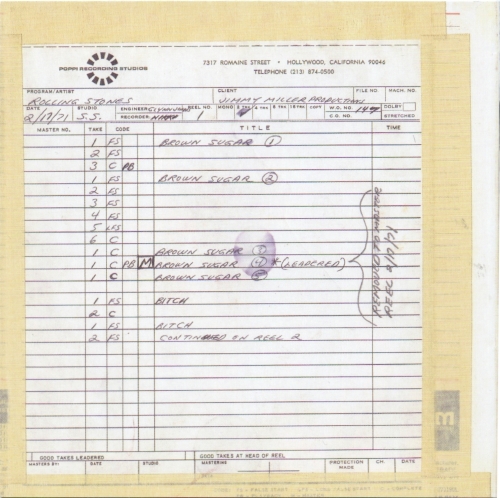 POPPI RECORDING STUDIOS
7317 ROMAINE STREET • HOLLYWOOD, CALIFORNIA 90046
TELEPHONE (213) 874-0500
PROGRAM/ARTIST CLIENT FILE NO. MACH. NO.
ROLLING STONES JIMMY MILLER PRODUCTIONS
DATE STUDIO ENGINEER REEL NO. MONO 2 TRK 4 TRK 8 TRK 16 TRK COPY W.O. NO. DOLBY
2/17/71 S.S. RECORDER 1 C.O. NO. STRETCHED
MASTER NO. TAKE CODE TITLE TIME
1 FS BROWN SUGAR 1
2 FS
3 C PB
1 FS BROWN SUGAR 2
2 FS
3 FS
4 FS
5 LFS
6 C
1 C BROWN SUGAR
1 C PB M BROWN SUGAR 4 * (LEADERED)
1 C BROWN SUGAR
REMOVED TO MASTER
REEL 2/17/71
1 FS BITCH
2 C
1 FS BITCH
2 FS CONTINUED ON REEL 2
GOOD TAKES LEADERED GOOD TAKES AT HEAD OF REEL
MASTERS BY: DATE STUDIO MASTERING PROTECTION MADE CH. DATE